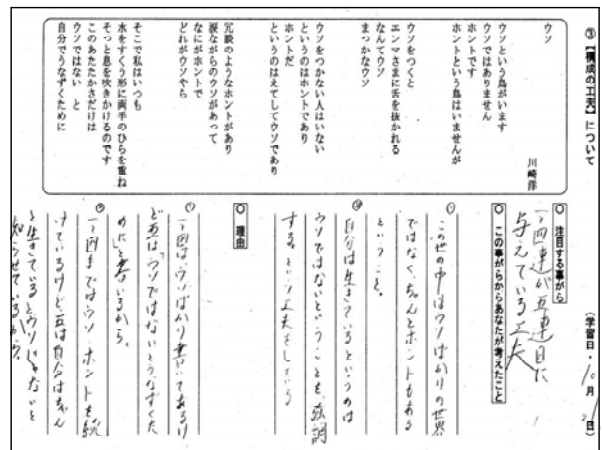 ③【構成の工夫】について
(学習日・10月21日)
ウソ
川崎洋
ウソという鳥がいます
ウソではありません
ホントです
ホントという鳥はいませんが
ウソをつくと
エンマさまに舌を抜かれる
なんてウソ
まっかなウソ
ウソをつかない人はいない
というのはホントであり
ホントだ
というのはえてしてウソであり
冗談のようなホントがあり
涙ながらのウソがあって
なにがホントで
どれがウソやら
そこで私はいつも
水をすくう形に両手のひらを重ね
そっと息を吹きかけるのです
このあたたかさだけは
ウソではない と
自分でうなずくために
○ 注目する事がら
一~四連が五連目に
与えている工夫
○ この事がらからあなたが考えたこと
① この世の中はウソばかりの世界
ではなく、ちゃんとホントもある
ということ。
② 自分は生きているというのは
ウソではないということを、強調
する。という工夫をしている
○ 理由
① 一~四は、ウソばかり書いてあるけ
ど五は「ウソではないとうなずくた
めに」と書いているから。
② 一~四まではウソ・ホントを続
けているけど五は自分はちゃん
と生きているとウソじゃないと
知らせているから。